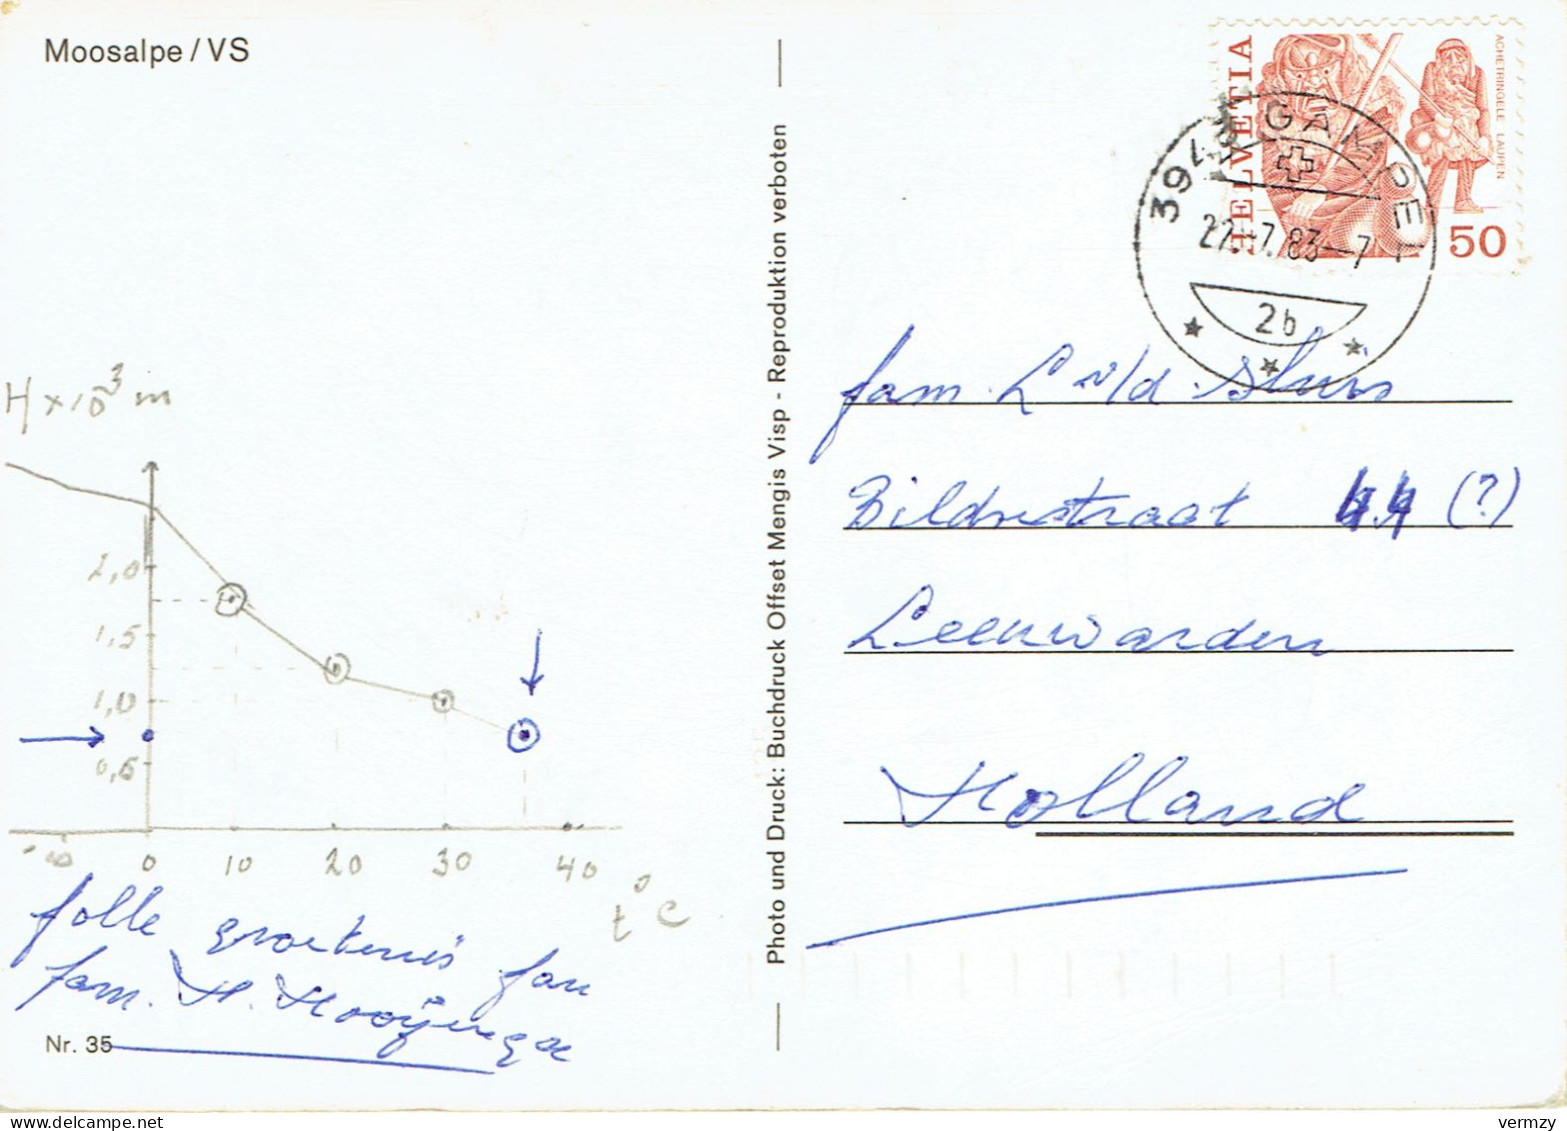 Moosalpe / VS
HELVETIA
ACHETRINGELE LAUPEN
50
3945 GAMPEL
27.-7.83-7
2b
H x 10³ m
2,0
1,5
1,0
0,5
-10 0 10 20 30 40
t °C
folle groetenis fan
fam. H. Hooijenga
Nr. 35
Photo und Druck: Buchdruck Offset Mengis Visp - Reproduktion verboten
fam. L v/d Sluis
Bildtsestraat 44 (?)
Leeuwarden
Holland
vermzy